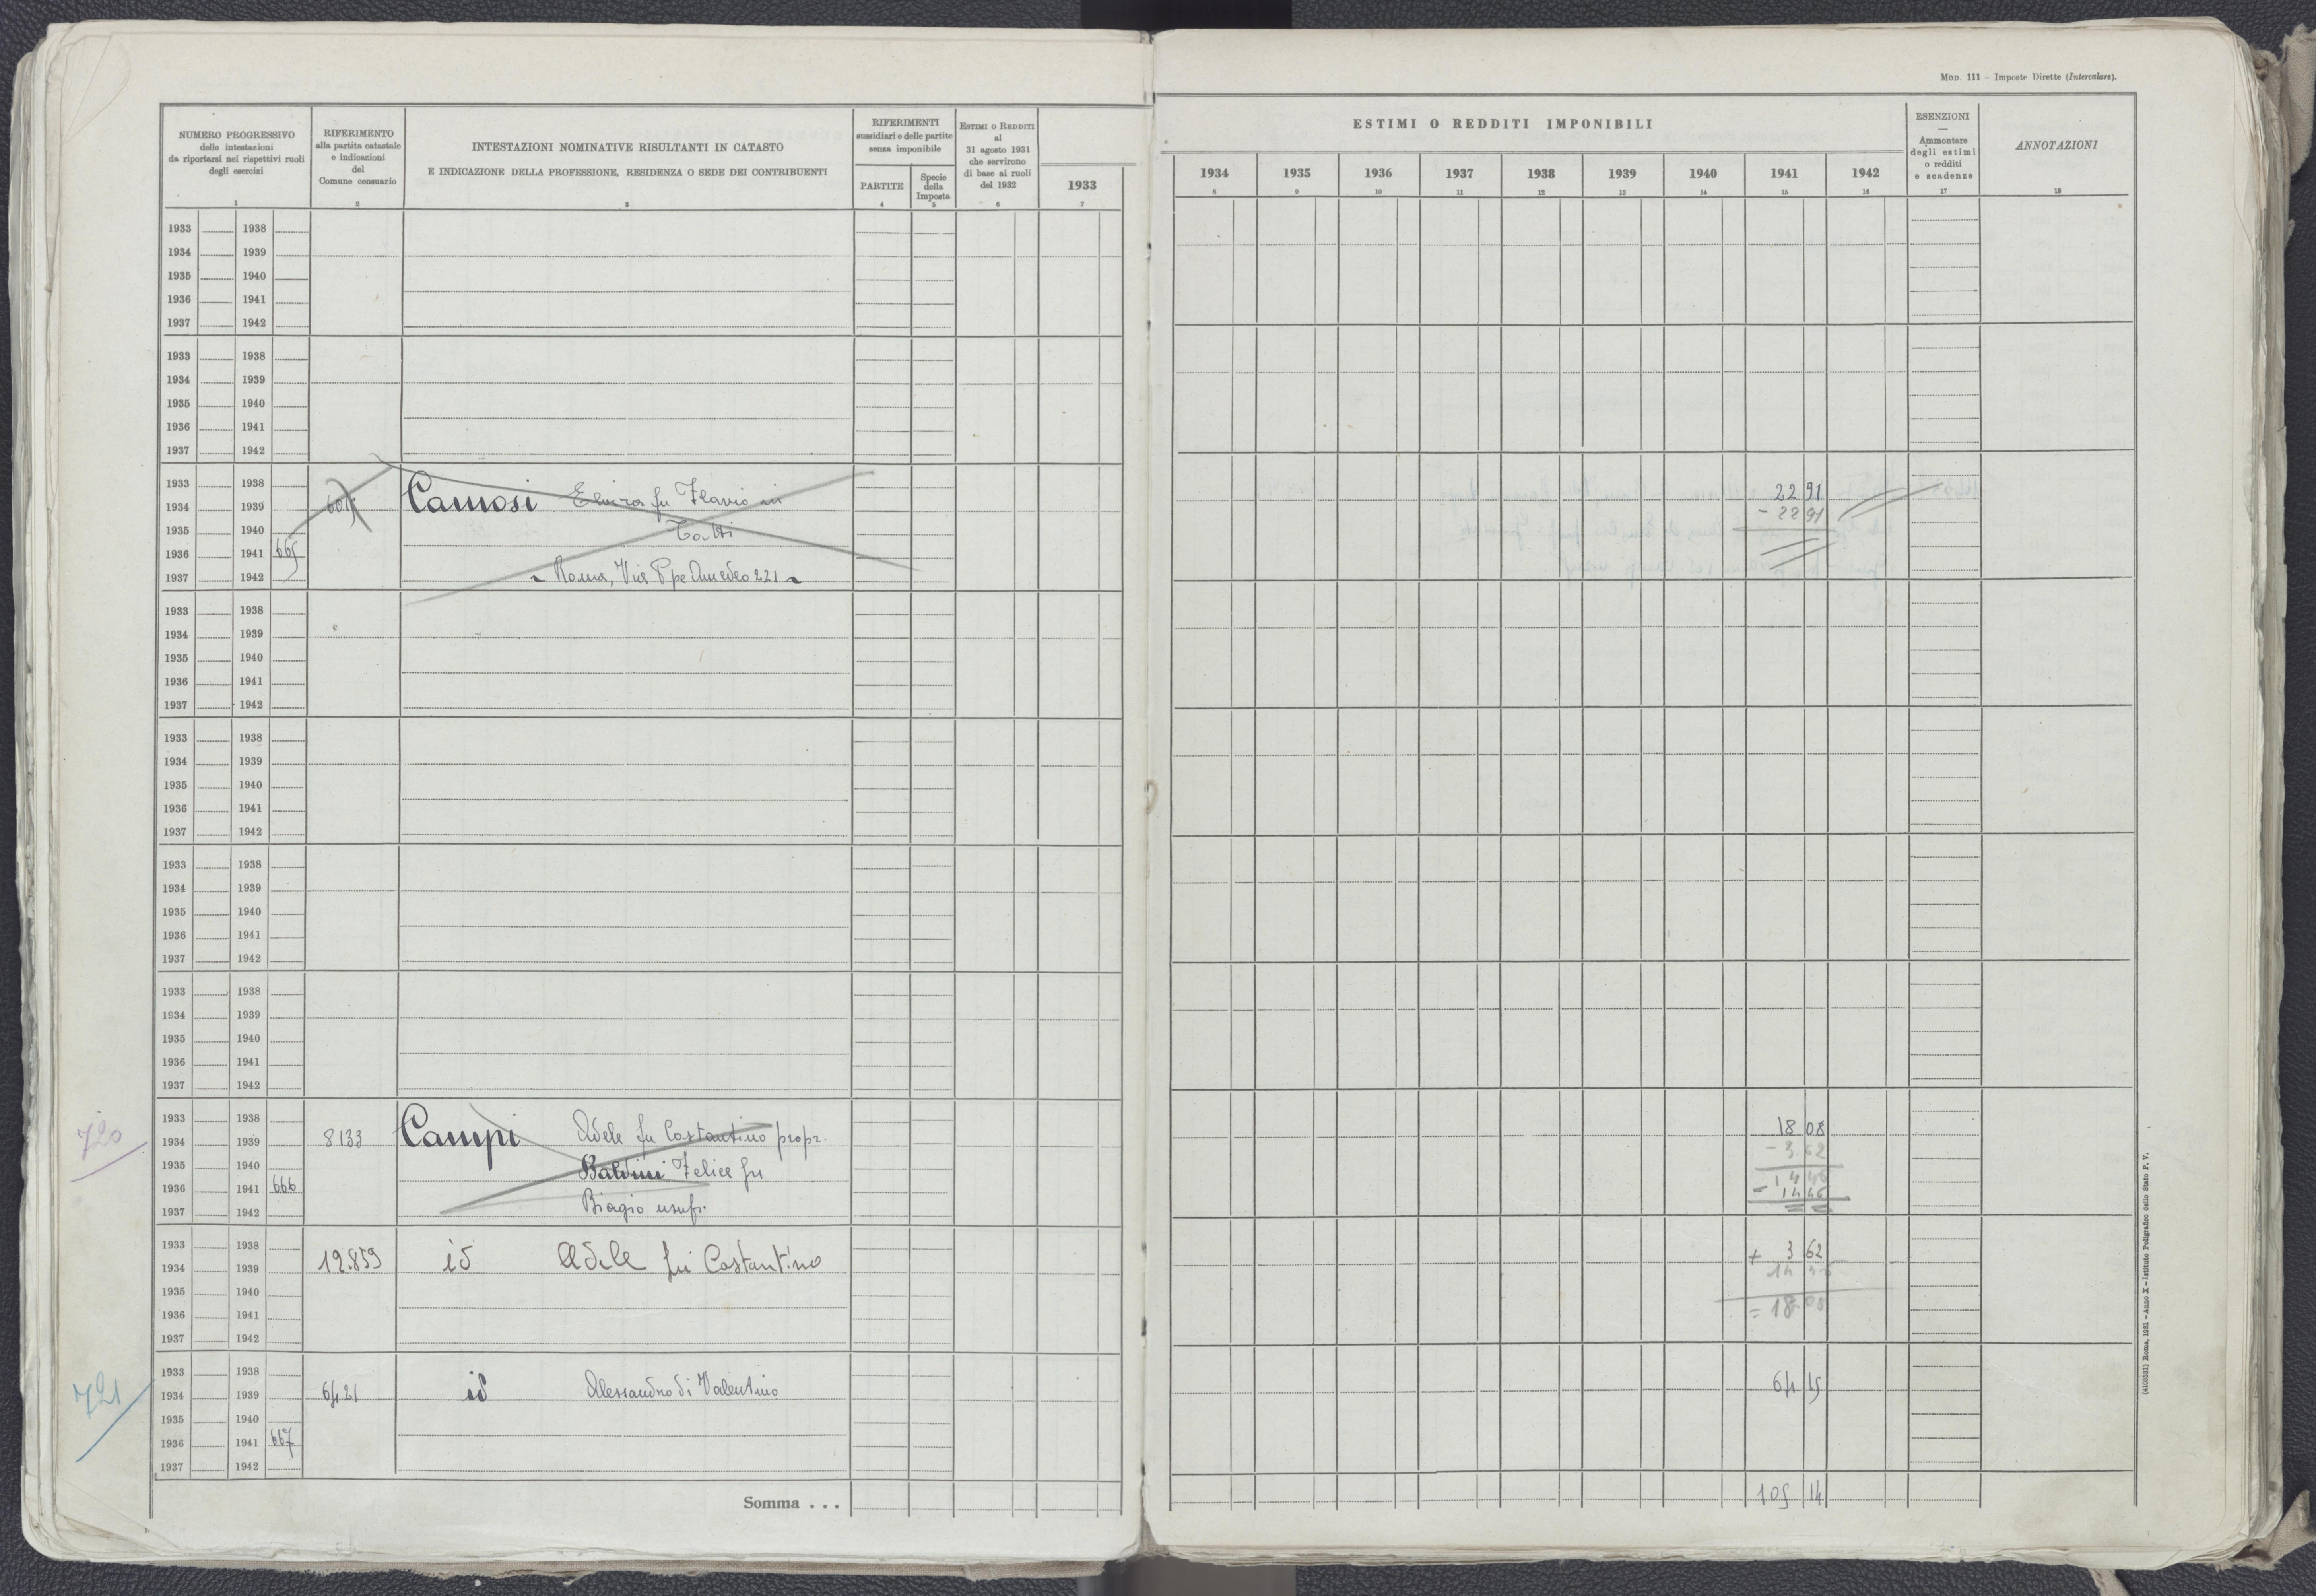 MOD. 111 – Imposte Dirette (Intercalare).
NUMERO PROGRESSIVO
delle intestazioni
da riportarsi nei rispettivi ruoli
degli esercizi
1
RIFERIMENTO
alla partita catastale
e indicazioni
del
Comune censuario
2
INTESTAZIONI NOMINATIVE RISULTANTI IN CATASTO
E INDICAZIONE DELLA PROFESSIONE, RESIDENZA O SEDE DEI CONTRIBUENTI
3
RIFERIMENTI
sussidiari e delle partite
senza imponibile
PARTITE
4
Specie
della
Imposta
5
ESTIMI O REDDITI
al
31 agosto 1931
che servirono
di base ai ruoli
del 1932
6
1933
7
ESTIMI O REDDITI IMPONIBILI
1934 1935 1936 1937 1938 1939 1940 1941 1942
8 9 10 11 12 13 14 15 16
ESENZIONI
—
Ammontare
degli estimi
o redditi
e scadenze
17
ANNOTAZIONI
18
1933 1938
1934 1939
1935 1940
1936 1941
1937 1942
1933 1938
1934 1939
1935 1940
1936 1941
1937 1942
1933 1938
1934 1939 Camosi Elvira fu Flavio in 22 91
1935 1940 - 22 91
1936 1941 665
1937 1942 Roma, Via Ppe Amedeo 221
1933 1938
1934 1939
1935 1940
1936 1941
1937 1942
1933 1938
1934 1939
1935 1940
1936 1941
1937 1942
1933 1938
1934 1939
1935 1940
1936 1941
1937 1942
1933 1938
1934 1939
1935 1940
1936 1941
1937 1942
720
1933 1938 18 08
1934 1939 8133 Campi Adele fu Costantino propr. - 3 62
1935 1940 Baldini Felice fu 14 46
1936 1941 666 - 14 46
1937 1942 Biagio usufr.
1933 1938 + 3 62
1934 1939 12.859 id Adele fu Costantino 14 46
1935 1940
1936 1941 = 18 08
1937 1942
721
1933 1938
1934 1939 6421 id Alessandro di Valentino 64 15
1935 1940
1936 1941 667
1937 1942
Somma . . . 105 14
(4100531) Roma, 1931 – Anno X – Istituto Poligrafico dello Stato P. V.